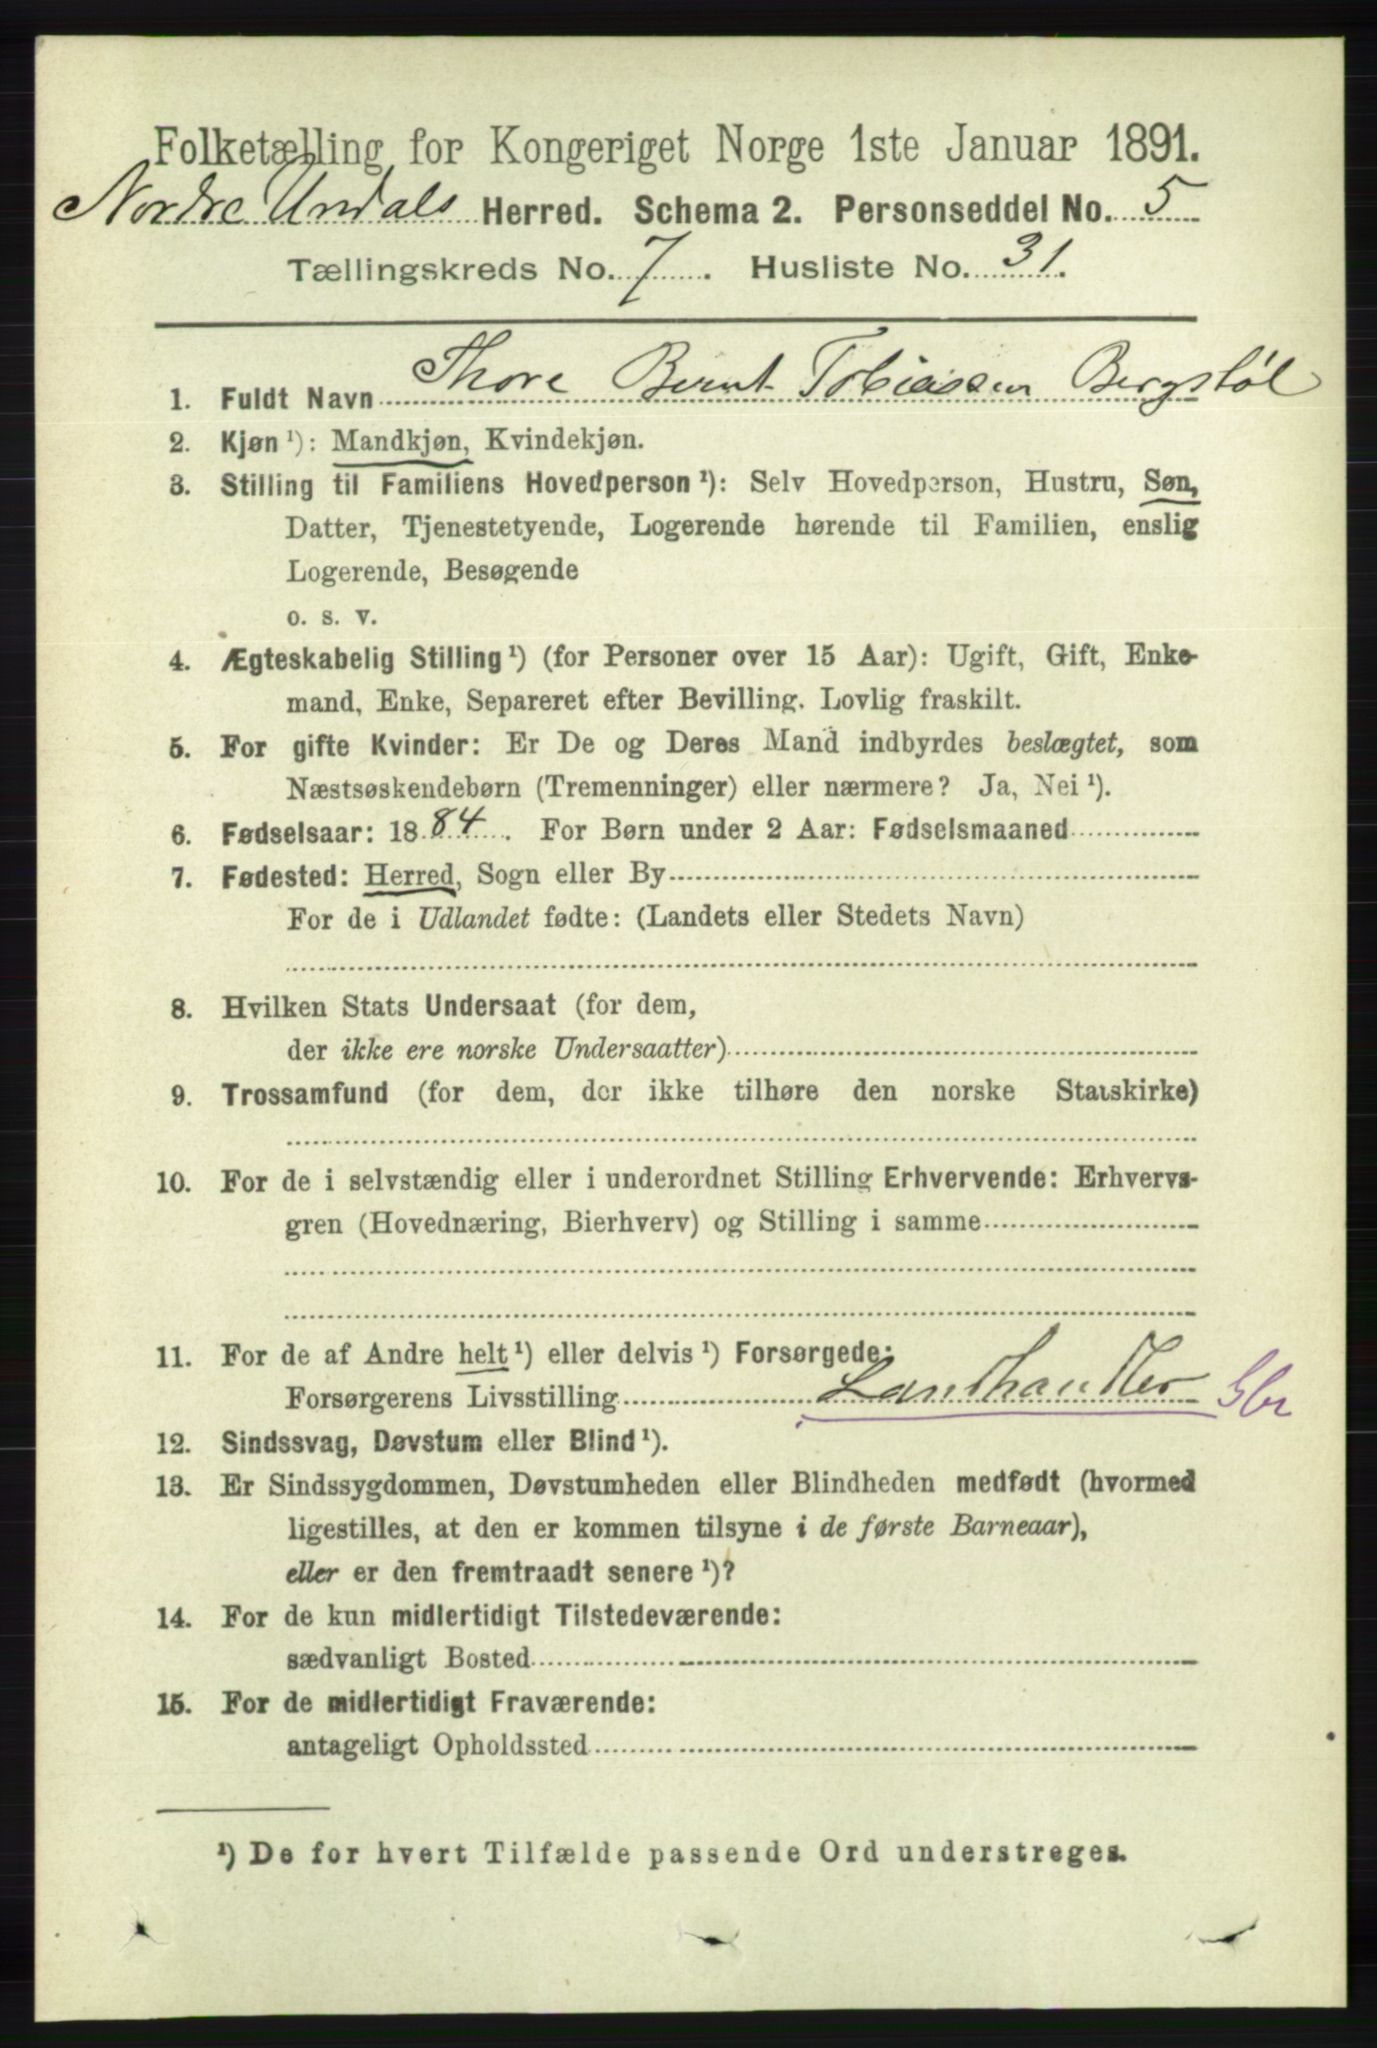 Folketælling for Kongeriget Norge 1ste Januar 1891.
Nordre Undals Herred. Schema 2. Personseddel No. 5
Tællingskreds No. 7. Husliste No. 31.
1. Fuldt Navn Thore Bernt Tobiassen Bergstøl
2. Kjøn ¹): Mandkjøn, Kvindekjøn.
3. Stilling til Familiens Hovedperson ¹): Selv Hovedperson, Hustru, Søn,
Datter, Tjenestetyende, Logerende hørende til Familien, enslig
Logerende, Besøgende
o. s. v.
4. Ægteskabelig Stilling ¹) (for Personer over 15 Aar): Ugift, Gift, Enke-
mand, Enke, Separeret efter Bevilling. Lovlig fraskilt.
5. For gifte Kvinder: Er De og Deres Mand indbyrdes beslægtet, som
Næstsøskendebørn (Tremenninger) eller nærmere? Ja, Nei ¹).
6. Fødselsaar: 1884. For Børn under 2 Aar: Fødselsmaaned
7. Fødested: Herred, Sogn eller By
For de i Udlandet fødte: (Landets eller Stedets Navn)
8. Hvilken Stats Undersaat (for dem,
der ikke ere norske Undersaatter)
9. Trossamfund (for dem, der ikke tilhøre den norske Statskirke)
10. For de i selvstændig eller i underordnet Stilling Erhvervende: Erhvervs-
gren (Hovednæring, Bierhverv) og Stilling i samme
11. For de af Andre helt ¹) eller delvis ¹) Forsørgede:
Forsørgerens Livsstilling Landhandler Gbr
12. Sindssvag, Døvstum eller Blind ¹).
13. Er Sindssygdommen, Døvstumheden eller Blindheden medfødt (hvormed
ligestilles, at den er kommen tilsyne i de første Barneaar),
eller er den fremtraadt senere ¹)?
14. For de kun midlertidigt Tilstedeværende:
sædvanligt Bosted
15. For de midlertidigt Fraværende:
antageligt Opholdssted
¹) De for hvert Tilfælde passende Ord understreges.